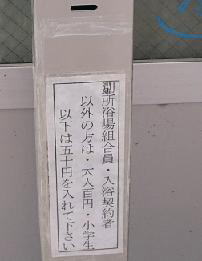 別所浴場組合員・入浴契約者
以外の方は・大人百円・小学生
以下は五十円を入れて下さい